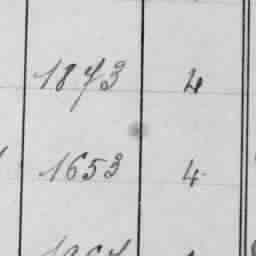 1873 4
1653 4